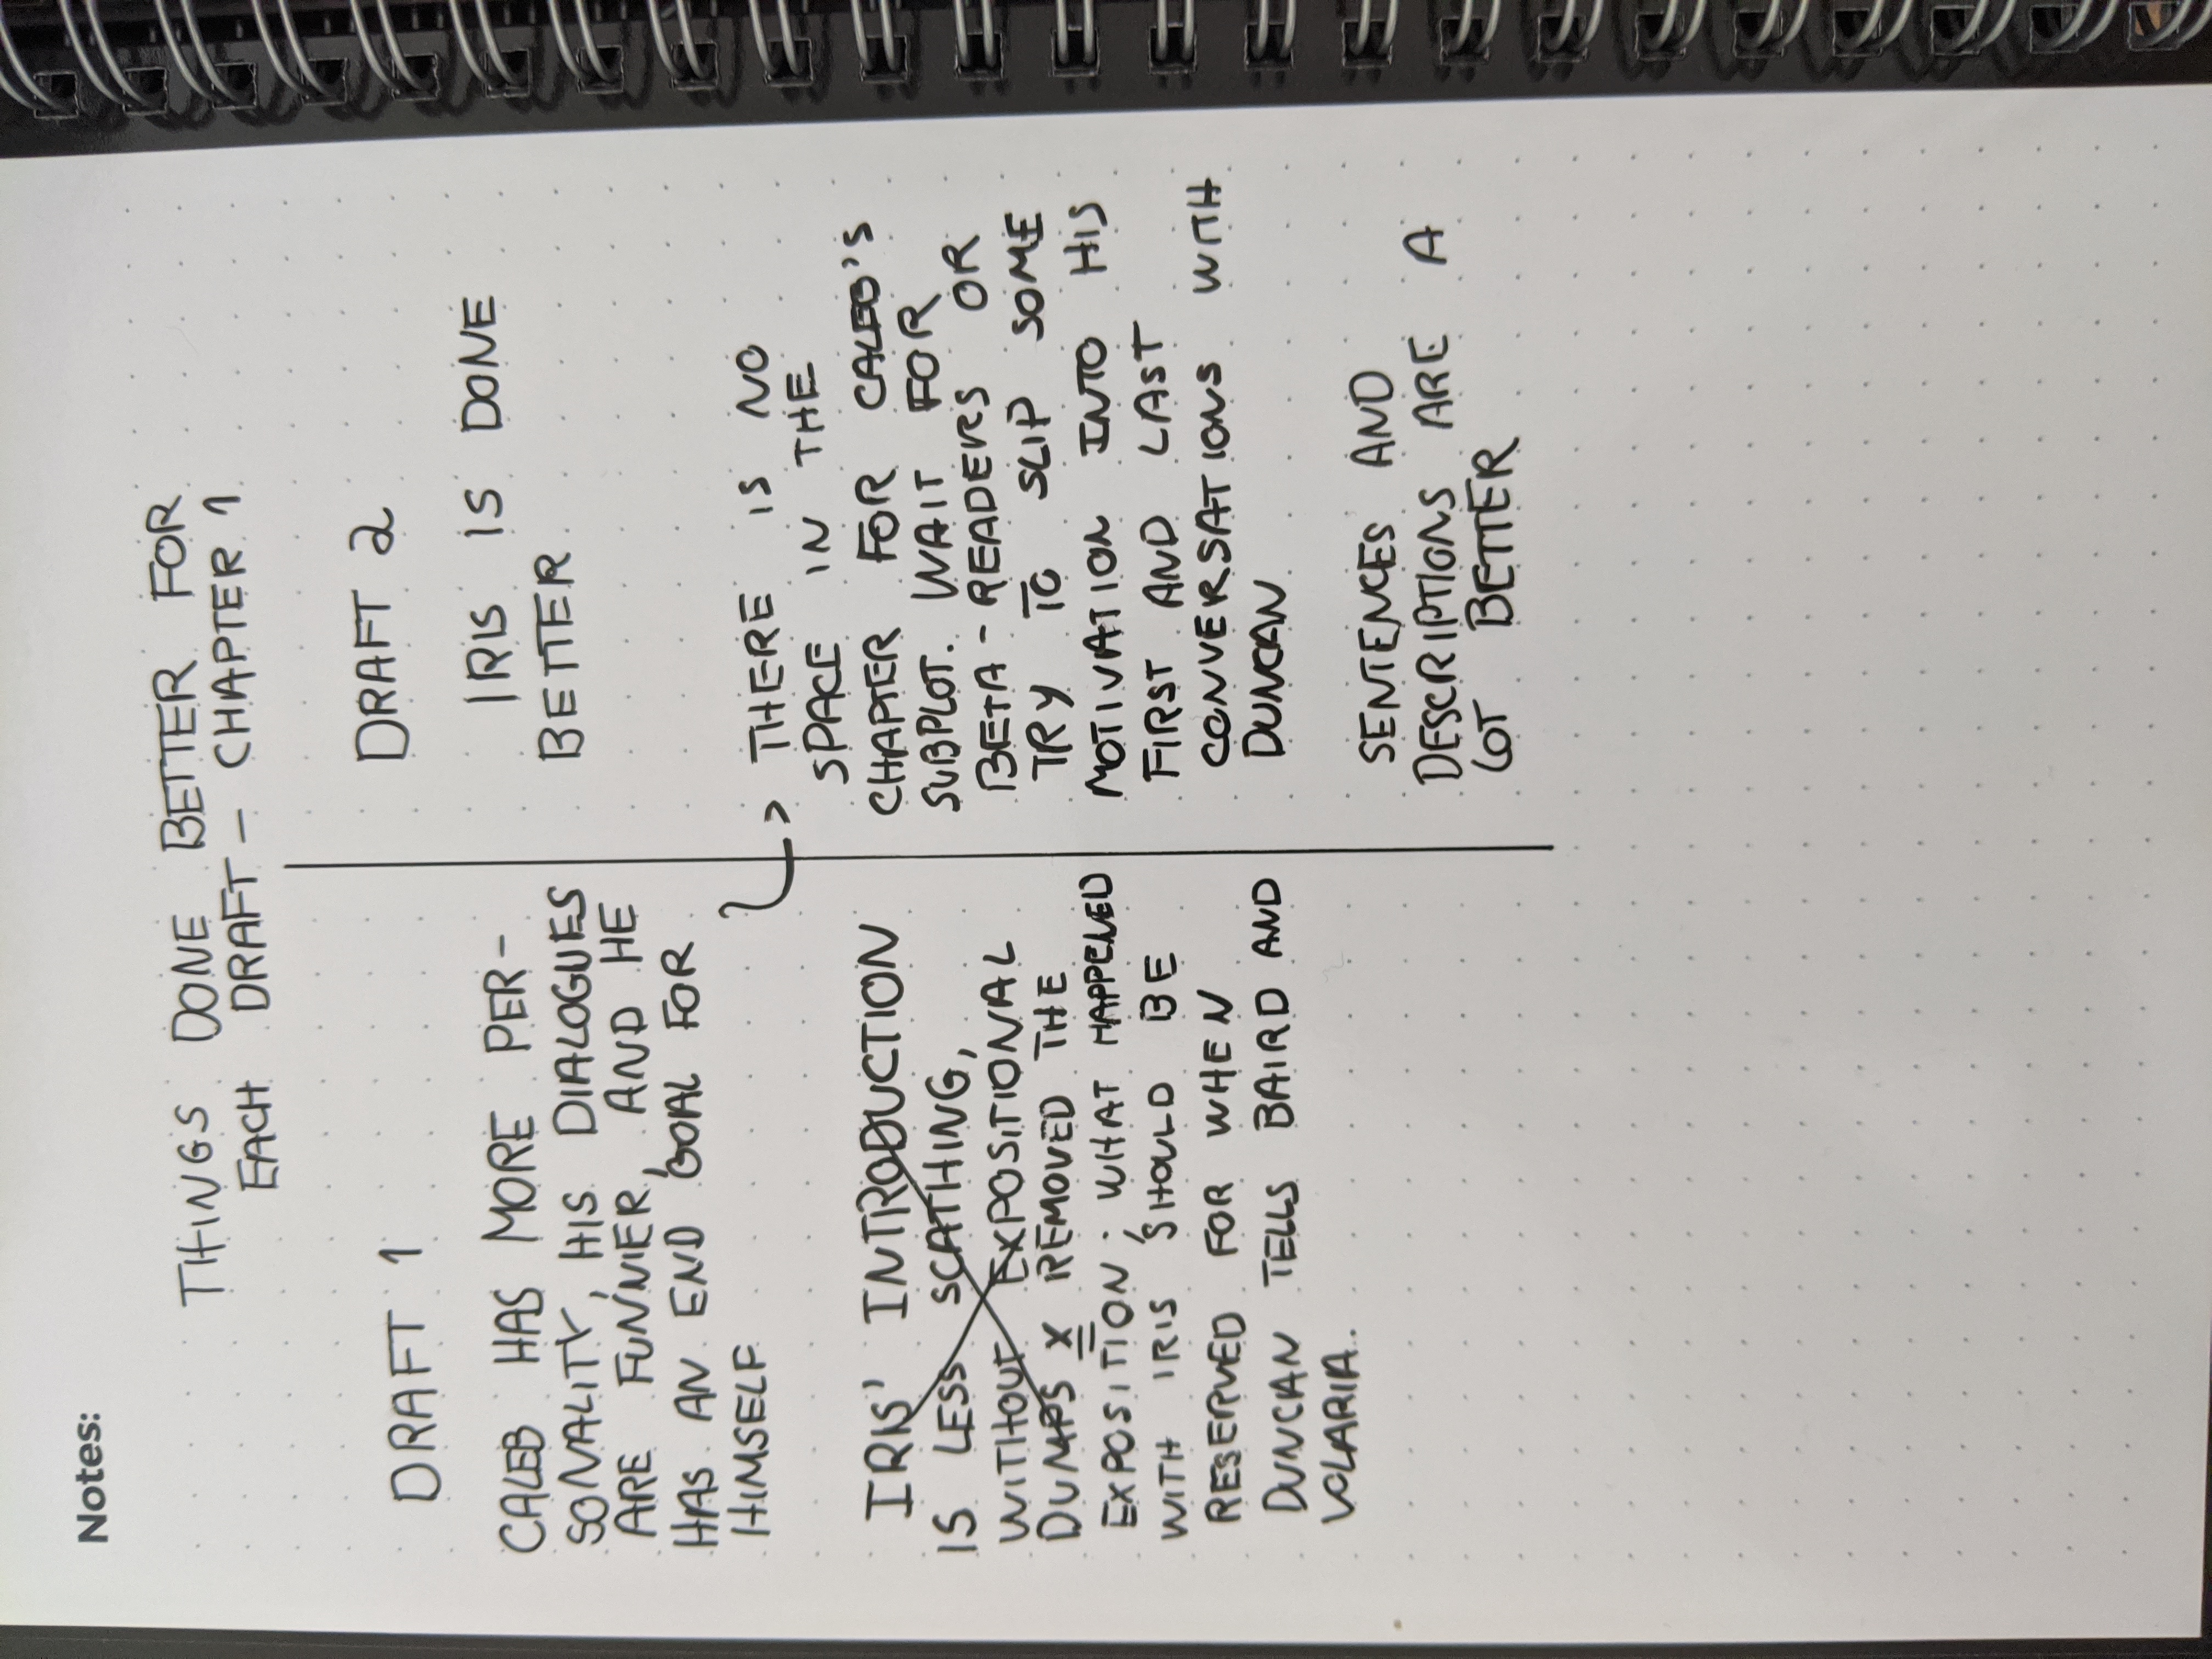 Notes:
THINGS DONE BETTER FOR
EACH DRAFT - CHAPTER 1
DRAFT 1
CALEB HAS MORE PER-
SONALITY, HIS DIALOGUES
ARE FUNNIER, AND HE
HAS AN END GOAL FOR
HIMSELF
IRIS' INTRODUCTION
IS LESS SCATHING,
WITHOUT EXPOSITIONAL
DUMPS x REMOVED THE
EXPOSITION; WHAT HAPPENED
WITH IRIS SHOULD BE
RESERVED FOR WHEN
DUNCAN TELLS BAIRD AND
VOLARIA.
DRAFT 2
IRIS IS DONE
BETTER
THERE IS NO
SPACE IN THE
CHAPTER FOR CALEB'S
SUBPLOT. WAIT FOR
BETA-READERS OR
TRY TO SLIP SOME
MOTIVATION INTO HIS
FIRST AND LAST
CONVERSATIONS WITH
DUNCAN
SENTENCES AND
DESCRIPTIONS ARE A
LOT BETTER